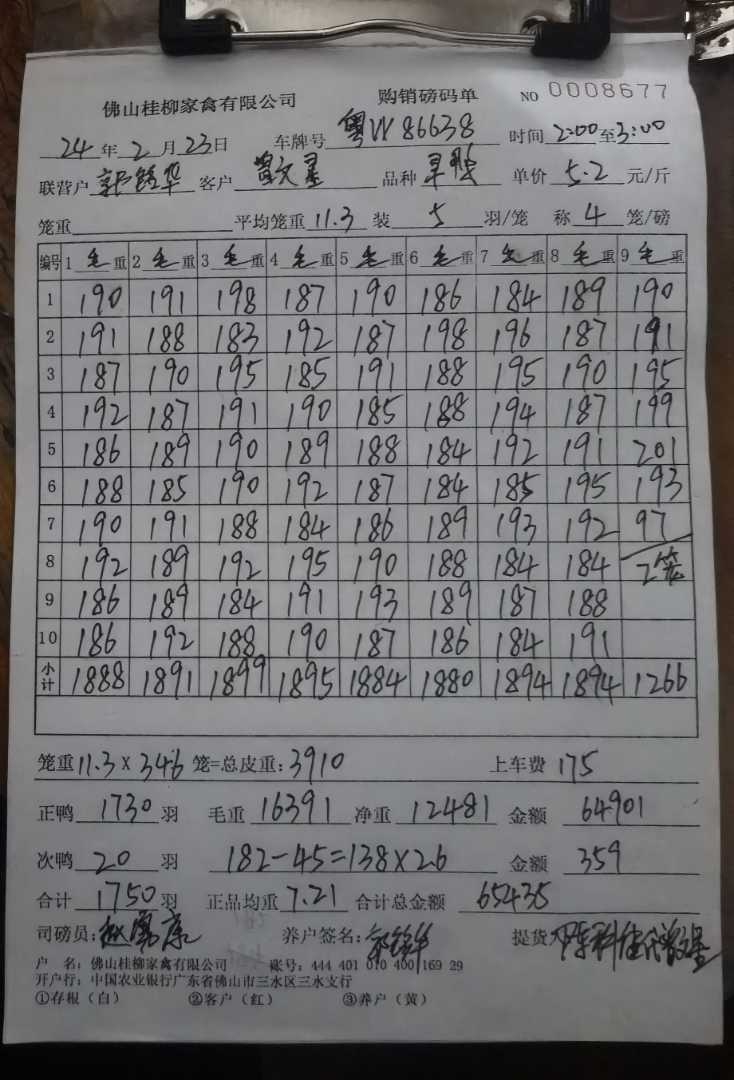 佛山桂柳家禽有限公司 购销磅码单 NO 0008677
24年2月23日 车牌号 粤W86638 时间2:00至3:00
联营户 郭锦华 客户 曾文星 品种 单价 5.2 元/斤
笼重 平均笼重11.3 装 5 羽/笼 称 4 笼/磅
编号 1毛重 2毛重 3毛重 4毛重 5毛重 6毛重 7毛重 8毛重 9毛重
1 190 191 198 187 190 186 184 189 190
2 191 188 183 192 187 198 196 187 191
3 187 190 195 185 191 188 195 190 195
4 192 187 191 190 185 188 194 187 199
5 186 189 190 189 188 184 192 191 201
6 188 185 190 192 187 184 185 195 193
7 190 191 188 184 186 189 193 192 97
8 192 189 192 195 190 188 184 184 2笼
9 186 189 184 191 193 189 187 188
10 186 192 188 190 187 186 184 191
小计 1888 1891 1899 1895 1884 1880 1894 1894 1266
笼重11.3×346笼=总皮重:3910 上车费 175
正鸭 1730 羽 毛重 16391 净重 12481 金额 64901
次鸭 20 羽 182-45=138×2.6 金额 359
合计 1750 羽 正品均重 7.21 合计总金额 65435
司磅员: 养户签名:郭锦华 提货人
户 名:佛山桂柳家禽有限公司 账号:444 401 010 400 169 29
开户行:中国农业银行广东省佛山市三水区三水支行
①存根(白) ②客户(红) ③养户(黄)